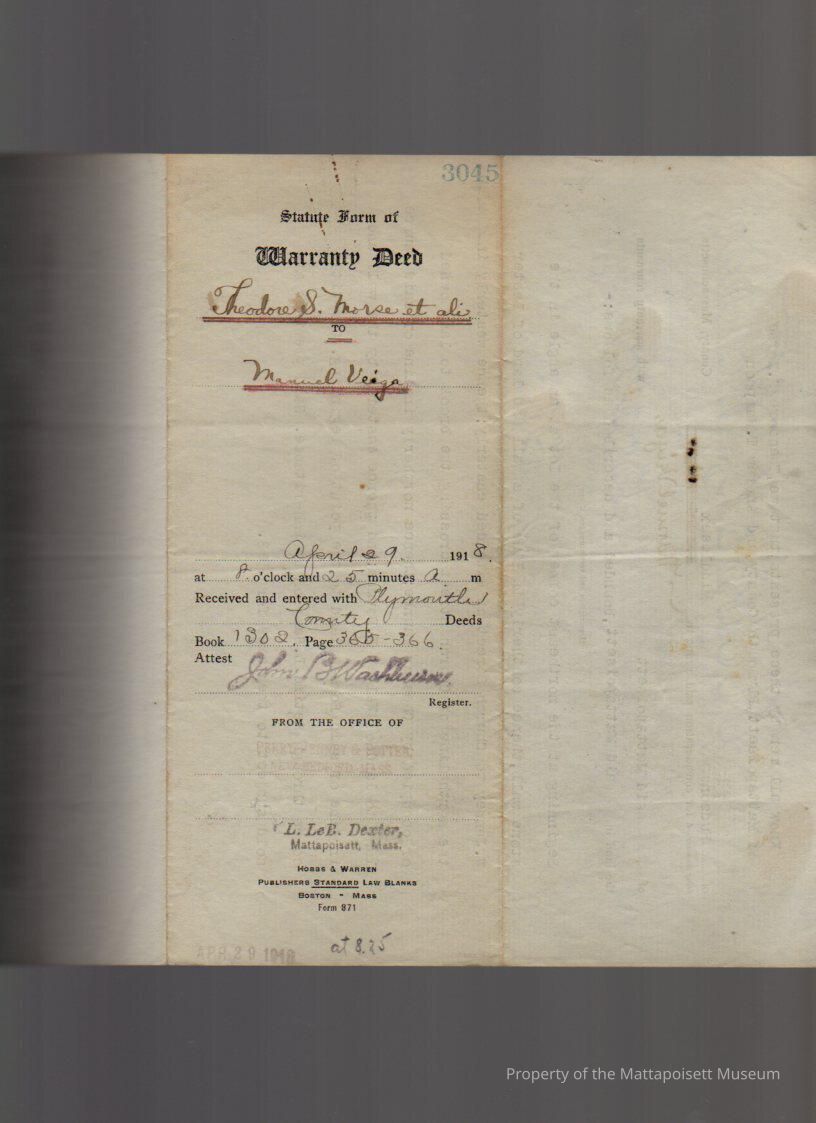 3045
Statute Form of
Warranty Deed
Theodore S. Morse et ali
TO
Manuel Veiga
April 29. 1918.
at 8. o'clock and 25 minutes A. m
Received and entered with Plymouth
County Deeds
Book 1302. Page 365-366.
Attest
John B Washburn
Register.
FROM THE OFFICE OF
& POTTER,
NEW BEDFORD, MASS.
L. LeB. Dexter,
Mattapoisett, Mass.
HOBBS & WARREN
PUBLISHERS STANDARD LAW BLANKS
BOSTON - MASS
Form 871
APR 29 1918 at 8.25
Property of the Mattapoisett Museum